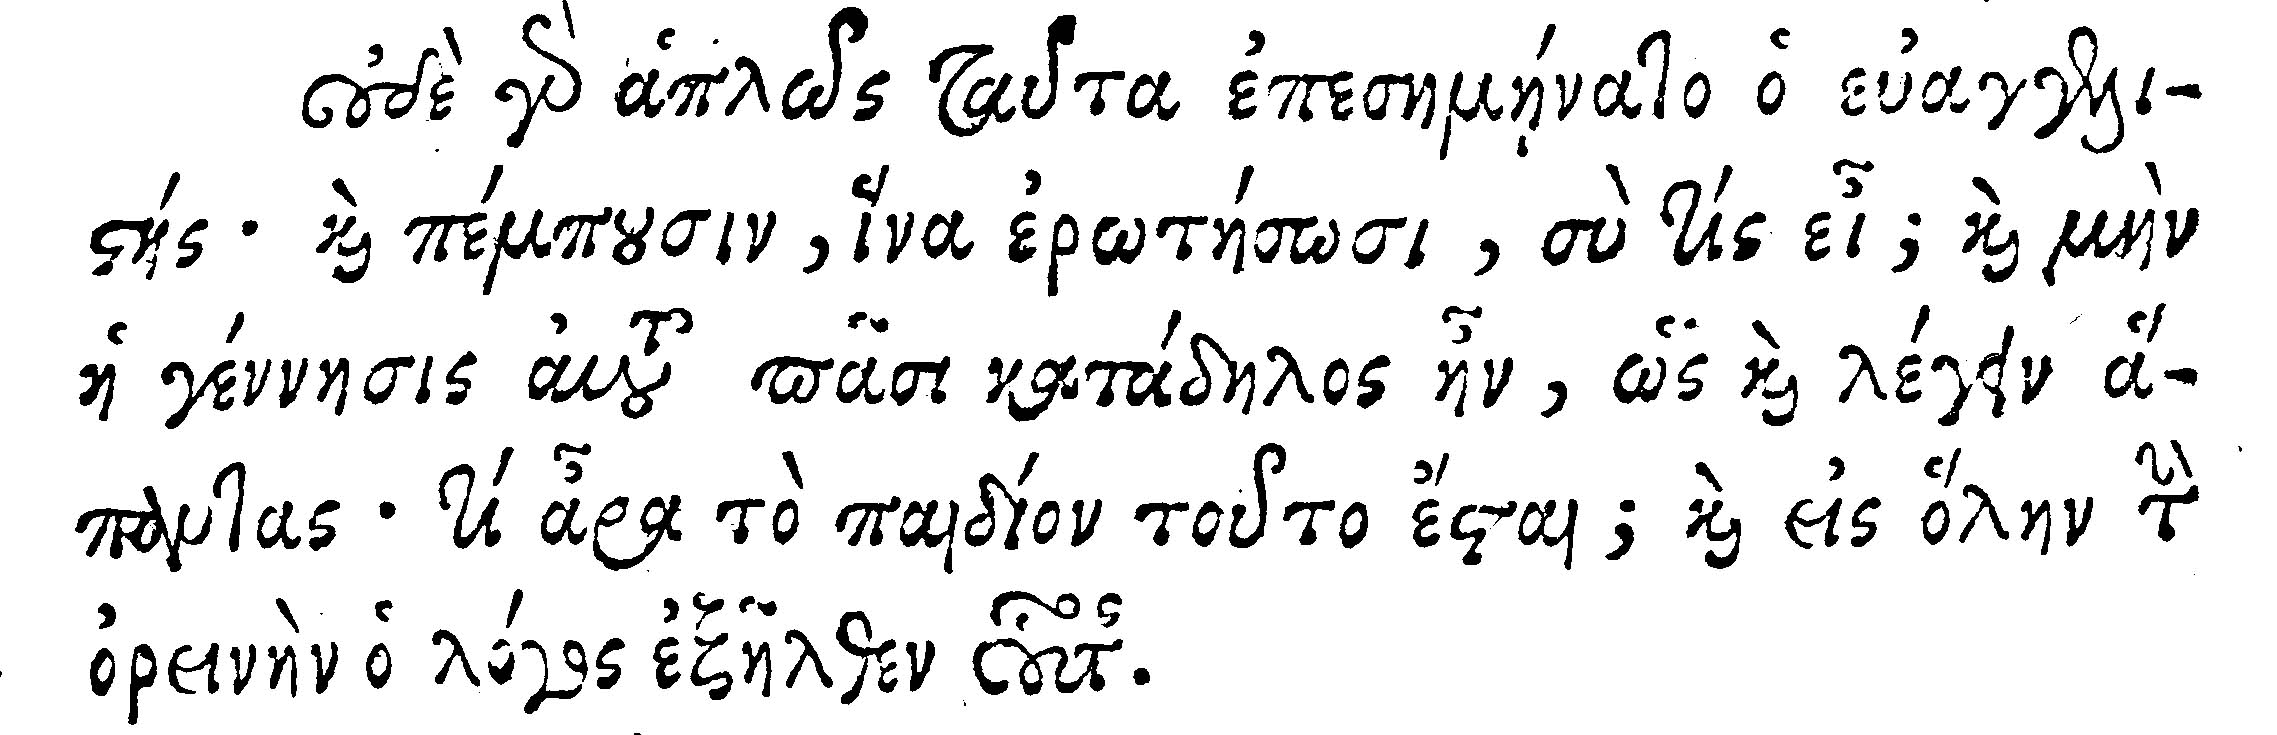 οὐδὲ γὰρ ἁπλῶς ταῦτα ἐπεσημήνατο ὁ εὐαγγελι-
στής· καὶ πέμπουσιν, ἵνα ἐρωτήσωσι, σὺ τίς εἶ; καὶ μὴν
ἡ γέννησις αὐτοῦ πᾶσι κατάδηλος ἦν, ὡς καὶ λέγειν ἅ-
παντας· τί ἆρα τὸ παιδίον τοῦτο ἔσται; καὶ εἰς ὅλην τὴν
ὀρεινὴν ὁ λόγος ἐξῆλθεν οὗτος.